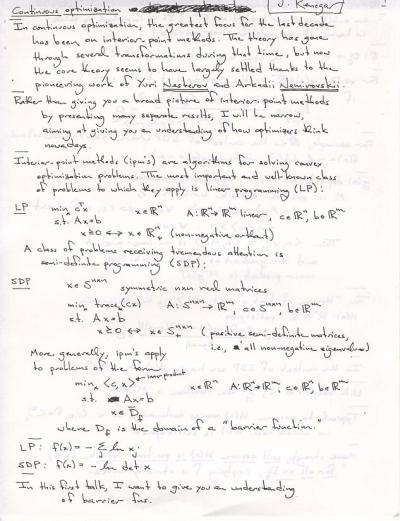 Continuous optimization
J. Renegar
In continuous optimization, the greatest focus for the last decade
has been on interior-point methods. The theory has gone
through several transformations during that time, but now
the core theory seems to have largely settled thanks to the
pioneering work of Yuri Nesterov and Arkadii Nemirovskii.
Rather than giving you a broad picture of interior-point methods
by presenting many separate results, I will be narrow,
aiming at giving you an understanding of how optimizers think
nowadays.
Interior-point methods (ipm's) are algorithms for solving convex
optimization problems. The most important and well-known class
of problems to which they apply is linear programming (LP):
LP min cᵀx x∈ℝⁿ A:ℝⁿ→ℝᵐ linear, c∈ℝⁿ, b∈ℝᵐ
s.t. Ax=b
x≥0 ↔ x∈ℝⁿ₊ (non-negative orthant)
A class of problems receiving tremendous attention is
semi-definite programming (SDP):
SDP x∈Sⁿˣⁿ symmetric nxn real matrices
min trace(cx) A:Sⁿˣⁿ→ℝᵐ, c∈Sⁿˣⁿ, b∈ℝᵐ
s.t. Ax=b
x≥0 ↔ x∈S₊ⁿˣⁿ (positive semi-definite matrices,
i.e., all non-negative eigenvalues)
More generally, ipm's apply
to problems of the form
min <c,x> ← inner product x∈ℝⁿ A:ℝⁿ→ℝᵐ, c∈ℝⁿ, b∈ℝᵐ
s.t. Ax=b
x∈D_f
where D_f is the domain of a "barrier function."
LP: f(x)= - Σ ln xⱼ
SDP: f(x)= - ln det x
In this first talk, I want to give you an understanding
of barrier fns.